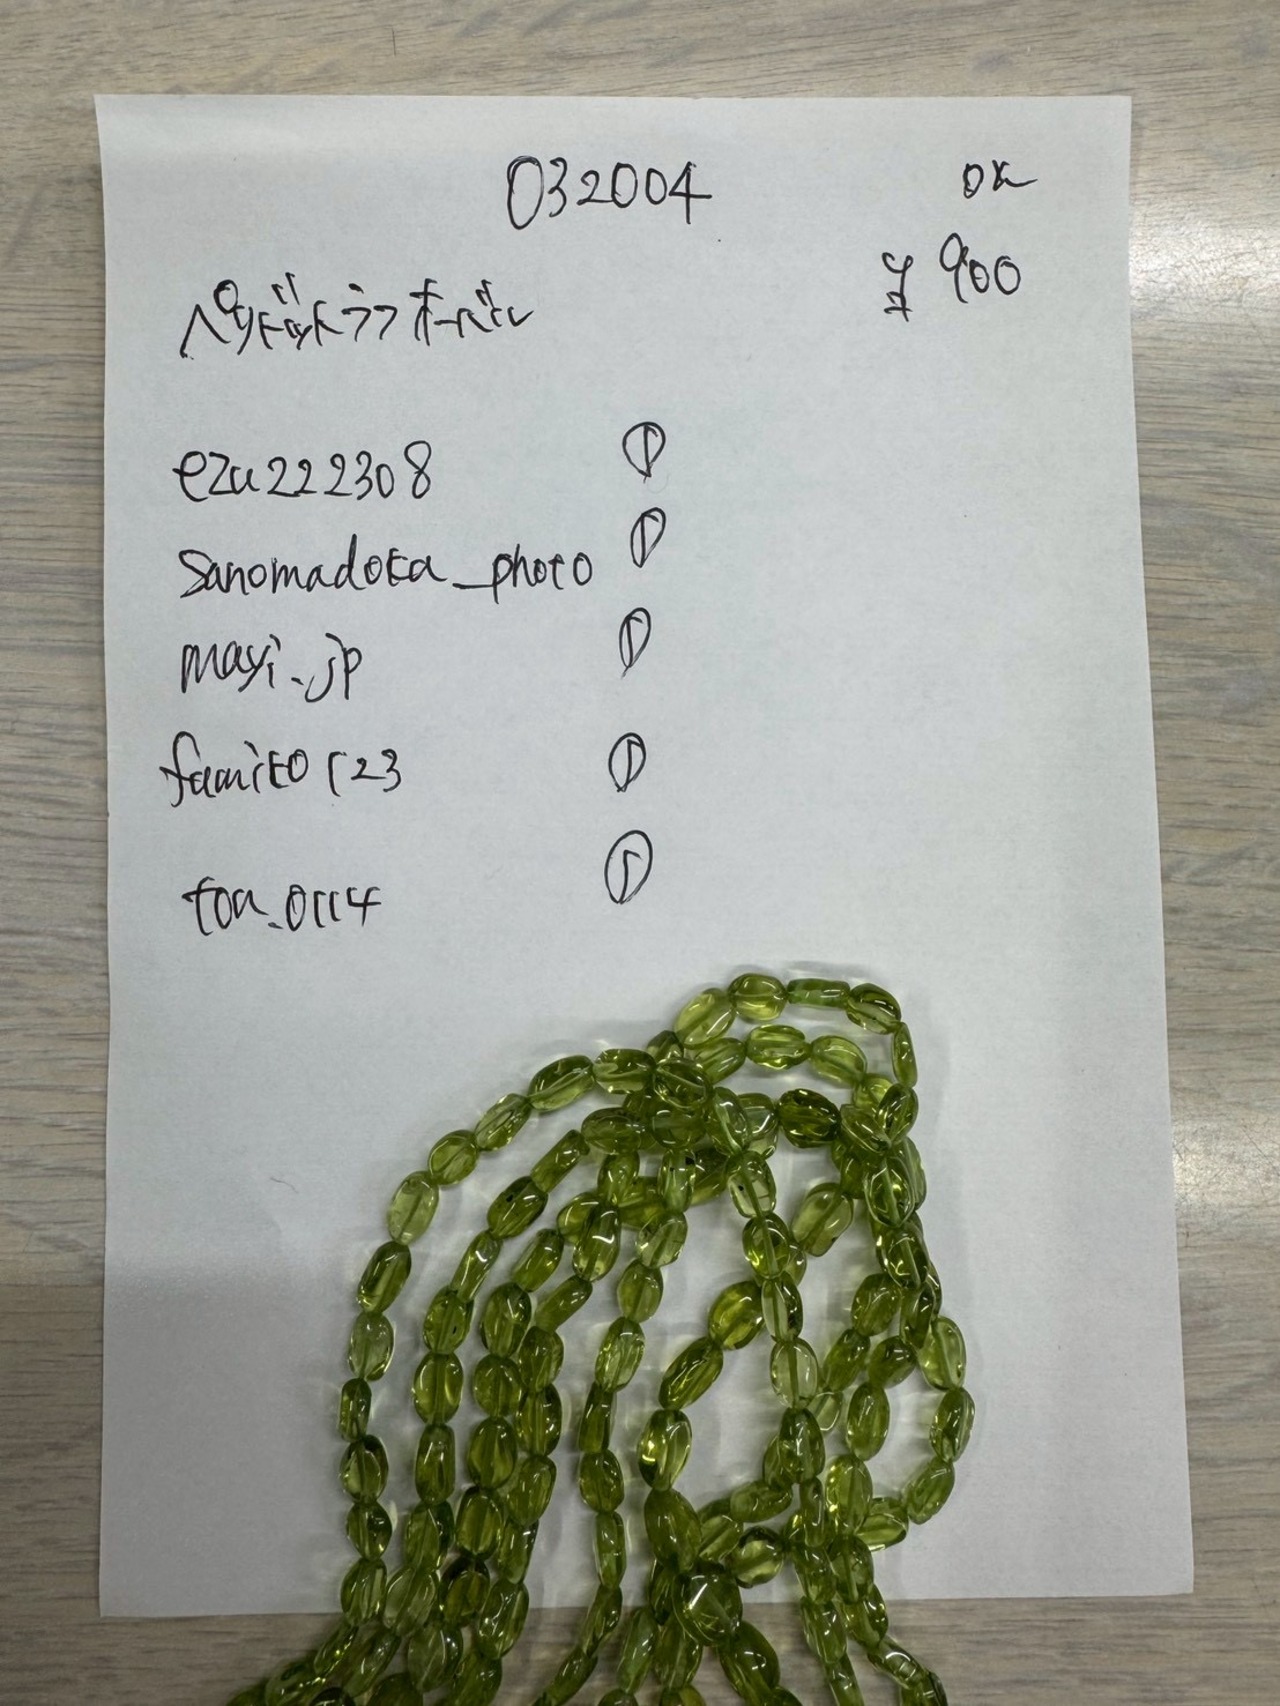 032004
OK
¥900
ペリドットラフオーバル
ezu222308 ①
sanomadoka_photo ①
mayi.jp ①
fumito123 ①
toa.0114 ①